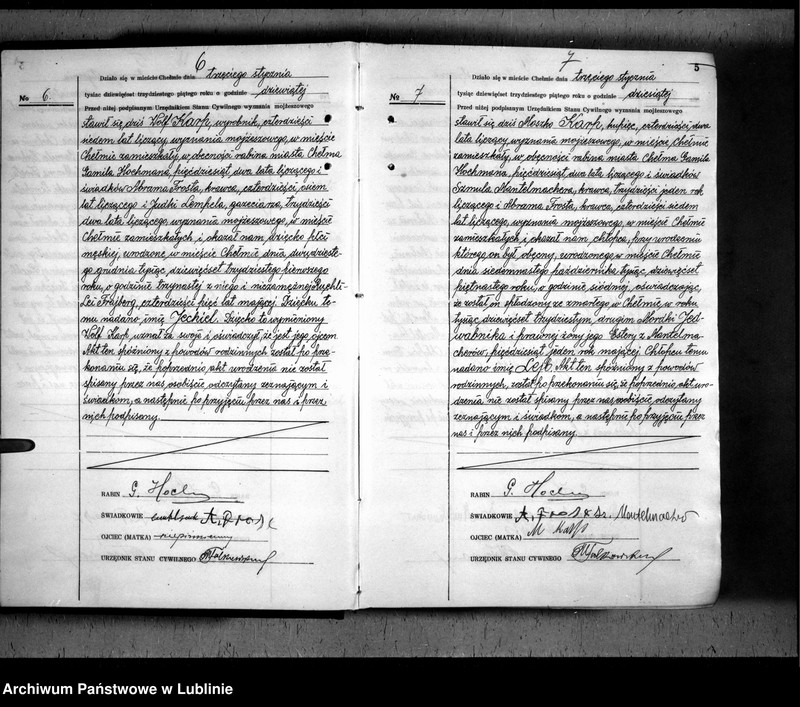 6
Działo się w mieście Chełmie dnia trzeciego stycznia
tysiąc dziewięćset trzydziestego piątego roku o godzinie dziewiątej
No 6.
Przed niżej podpisanym Urzędnikiem Stanu Cywilnego wyznania mojżeszowego
stawił się dziś Wolf Karp, wyrobnik, czterdzieści
siedem lat liczący wyznania mojżeszowego, w mieście
Chełmie zamieszkały w obecności rabina miasta Chełma
Gamila Hochmana, pięćdziesiąt dwa lata liczącego i
świadków Abrama Frosta, krawca, czterdzieści, osiem
lat liczącego i Judki Lempela, gazeciarza, trzydzieści
dwa lata liczącego, wyznania mojżeszowego, w mieście
Chełmie zamieszkałych i okazał nam, dziecko płci
męskiej, urodzone, w mieście Chełmie dnia, dwudzieste-
go grudnia tysiąc, dziewięćset trzydziestego pierwszego
roku, o godzinie trzynastej z niego i niezamężnej Ruchli-
Lei Frajberg, czterdzieści pięć lat mającej. Dziecku te-
mu nadano imię Jechiel. Dziecko to wymieniony
Wolf Karp, uznał za swoje i oświadczył, że jest jego ojcem
Akt ten spóźniony z powodów rodzinnych został po prze-
konaniu się, że poprzednio, akt urodzenia nie został
spisany przez nas, osobiście odczytany zeznającym i
świadkom, a następnie po przyjęciu przez nas i przez
nich podpisany.
RABIN G. Hochm
ŚWIADKOWIE A, Frost
OJCIEC (MATKA) niepiśmienny
URZĘDNIK STANU CYWILNEGO
7
5
Działo się w mieście Chełmie dnia trzeciego stycznia
tysiąc dziewięćset trzydziestego piątego roku o godzinie dziesiątej
No 7.
Przed niżej podpisanym Urzędnikiem Stanu Cywilnego wyznania mojżeszowego
stawił się dziś Moszko Karp, kupiec, czterdzieści, dwa
lata liczący, wyznania mojżeszowego, w mieście, Chełmie
zamieszkały, w obecności rabina miasta Chełma Gamila
Hochmana, pięćdziesiąt dwa lata liczącego i świadków
Szmula Mantelmachera, krawca, trzydzieści jeden rok
liczącego i Abrama Frosta, krawca, czterdzieści siedem
lat liczącego, wyznania mojżeszowego, w mieście Chełmie
zamieszkałych i okazał nam, chłopca, przy urodzeniu
którego on był obecny, urodzonego w mieście Chełmie
dnia siedemnastego października tysiąc, dziewięćset
piętnastego roku, o godzinie, siódmej, oświadczając,
że został on spłodzony ze zmarłego w Chełmie w roku
tysiąc, dziewięćset trzydziestym, drugim Mordki Jed-
wabnika i prawnej żony jego Estery z Mantelma-
cherów, pięćdziesiąt jeden rok mającej. Chłopcu temu
nadano imię Lejb. Akt ten, spóźniony z powodów
rodzinnych, został po przekonaniu się, że poprzednio, akt uro-
dzenia nie został spisany przez nas osobiście odczytany
zeznającym i świadkom, a następnie po przyjęciu przez
nas i przez nich podpisany.
RABIN G. Hochm
ŚWIADKOWIE A, Frost Sz. Mantelmacher
OJCIEC (MATKA) M Karp
URZĘDNIK STANU CYWINEGO
Archiwum Państwowe w Lublinie